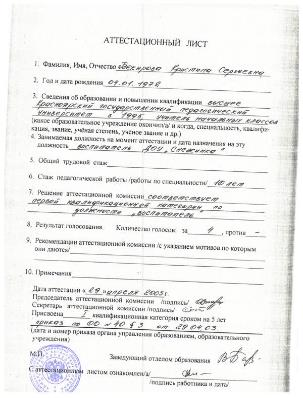 АТТЕСТАЦИОННЫЙ ЛИСТ
1. Фамилия, Имя, Отчество Кристина Сергеевна
2. Год и дата рождения 09.01.197
3. Сведения об образовании и повышения квалификации высшее
Красноярский государственный педагогический
университет в 199 , учитель начальных классов
(какое образовательное учреждение окончил/а/ и когда, специальность, квалифи-
кация, звание, учёная степень, ученое звание и др.)
4. Занимаемая должность на момент аттестации и дата назначения на эту
должность воспитатель ДОУ „Снежинка"
5. Общий трудовой стаж
6. Стаж педагогической работы /работы по специальности/ 10 лет
7. Решение аттестационной комиссии соответствует
первой квалификационной категории, по
должности „воспитатель
8. Результат голосования Количество голосов за 9, против –
9. Рекомендации аттестационной комиссии /с указанием мотивов по которым
они даются/
10. Примечания
Дата аттестации «29» апреля 2003 г.
Председатель аттестационной комиссии /подпись/
Секретарь аттестационной комиссии /подпись/
Присвоена I квалификационная категория сроком на 5 лет
приказ по ОО № 40 § 3 от 29.04.03
(дата и номер приказа органа управления образованием, образовательного
учреждения)
М.П. Заведующий отделом образования
С аттестационным листом ознакомлен/а/
/подпись работника и дата/